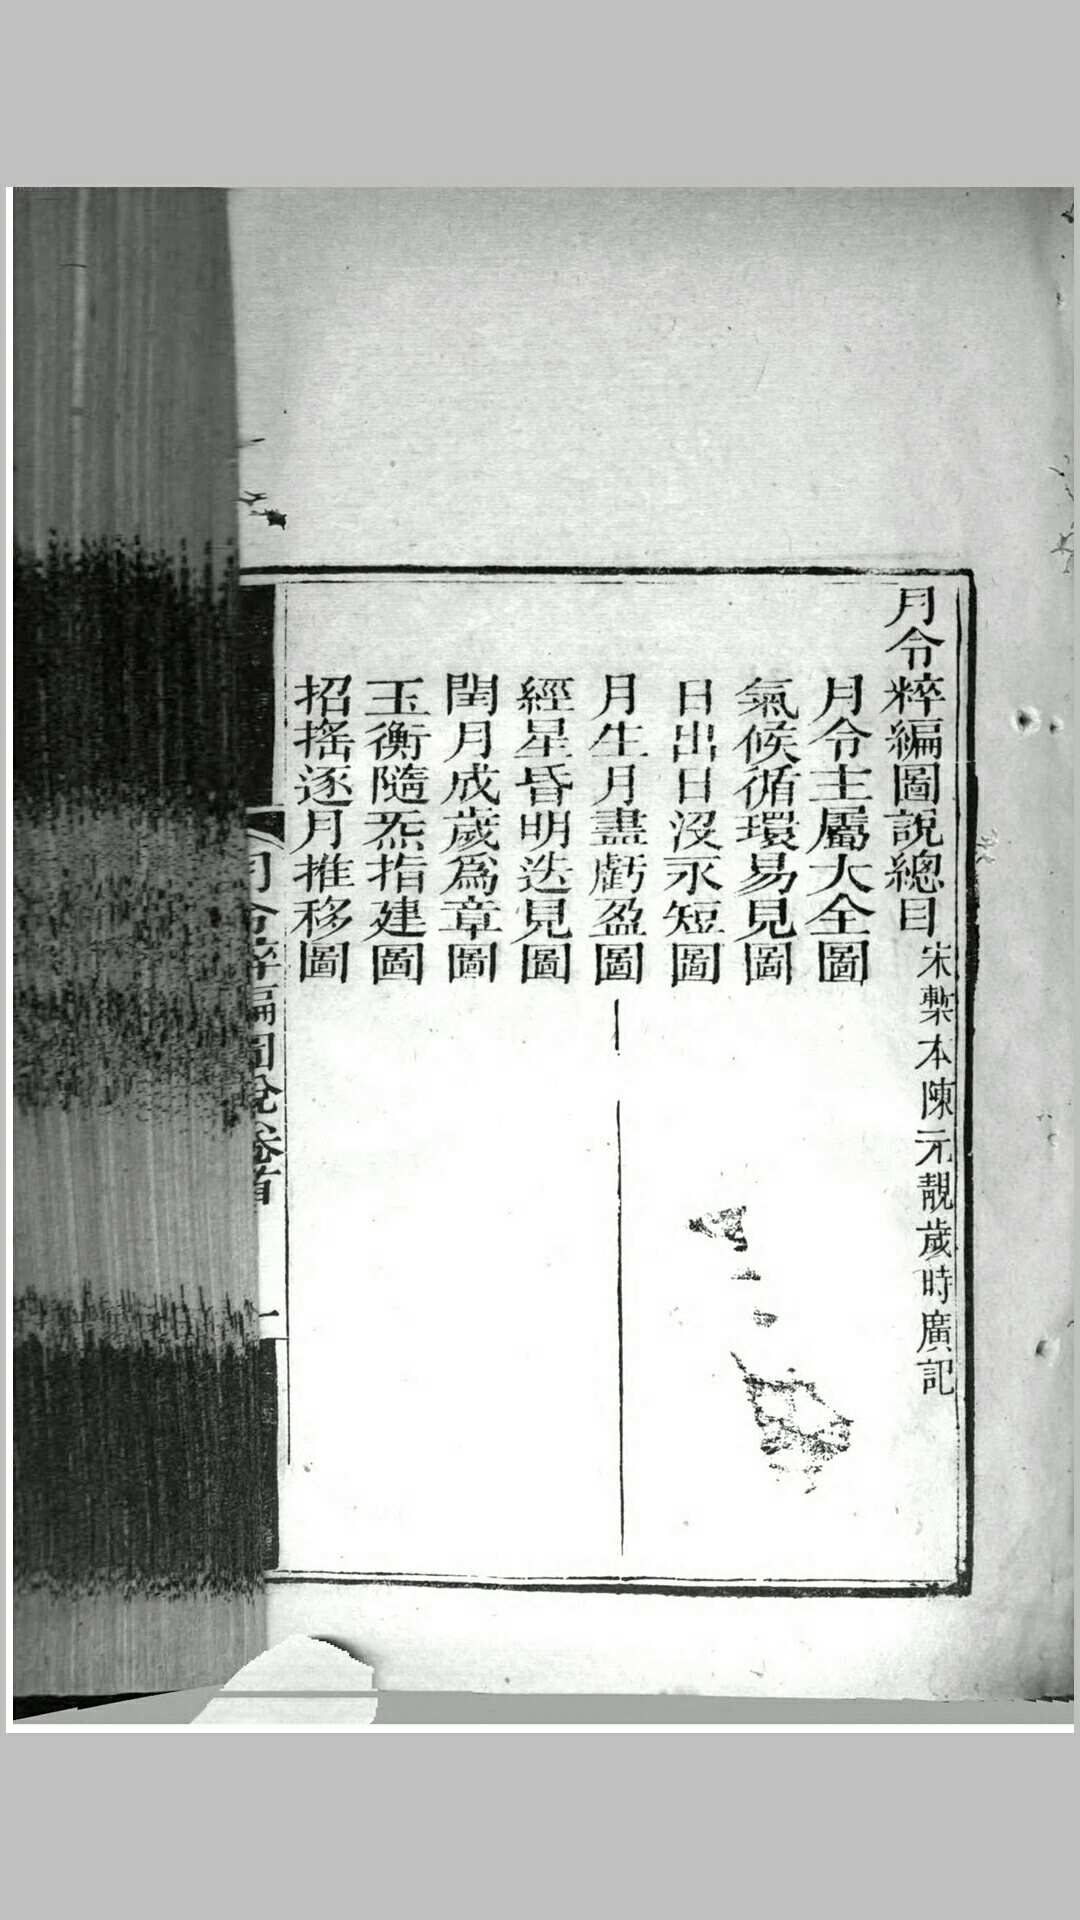 月令粹編圖說總目 宋槧本陳元靚歲時廣記
月令主屬大全圖
氣候循環易見圖
日出日沒永短圖
月生月盡虧盈圖
經星昏明迭見圖
閏月成歲爲章圖
玉衡隨炁指建圖
招搖逐月推移圖
月令粹編圖說卷首
一